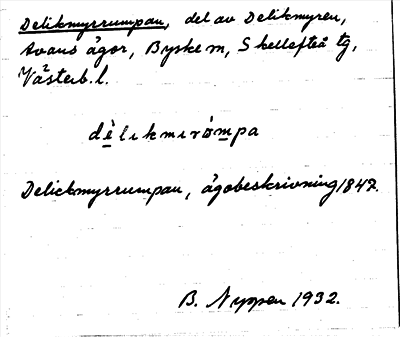 Delikmyrrumpan, del av Delikmyren,
Avans ägor, Byske sn, Skellefteå tg,
Västerb. l.
dèlikmiròmpa
Delickmyrrumpan, ägobeskrivning 1847.
B. Nyppen 1932.